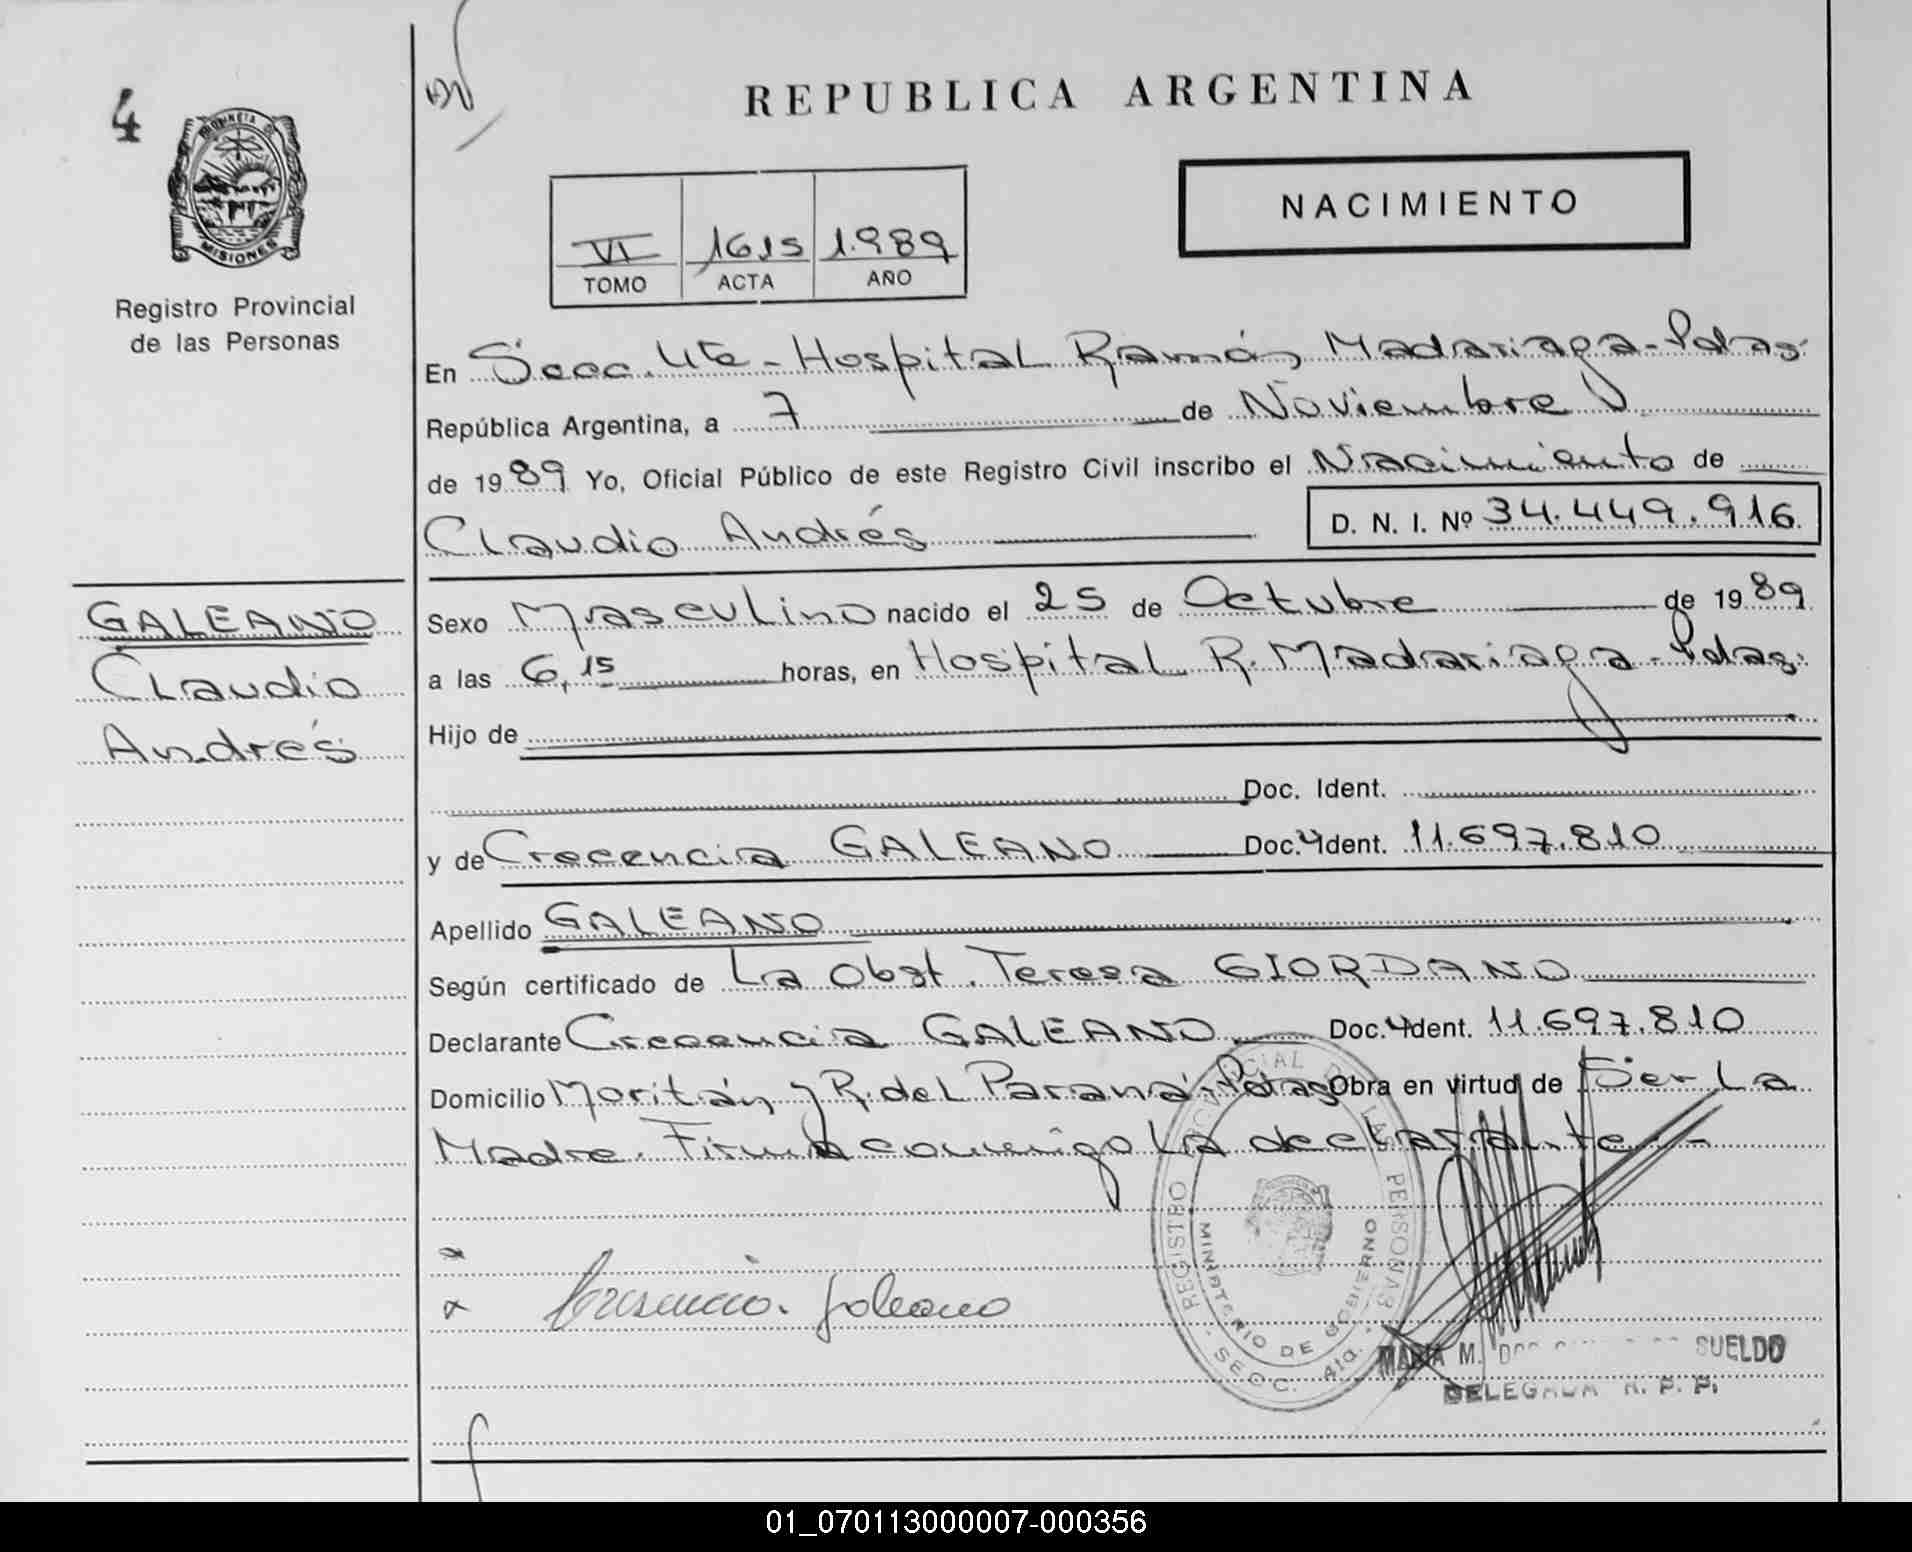 4
REPUBLICA ARGENTINA
NACIMIENTO
VI 1615 1.989
TOMO ACTA AÑO
PROVINCIA DE MISIONES
Registro Provincial
de las Personas
En Secc. 4ta - Hospital Ramón Madariaga - Pdas.
República Argentina, a 7 de Noviembre
de 1989 Yo, Oficial Público de este Registro Civil inscribo el Nacimiento de
Claudio Andrés D. N. I. Nº 34.449.916
GALEANO
Claudio
Andrés
Sexo Masculino nacido el 25 de Octubre de 1989
a las 6,15 horas, en Hospital R. Madariaga - Pdas.
Hijo de
Doc. Ident.
y de Crecencia GALEANO Doc. Ident. 11.697.810
Apellido GALEANO
Según certificado de La Obst. Teresa GIORDANO
Declarante Crecencia GALEANO Doc. Ident. 11.697.810
Domicilio Moritán y R. del Paraná - Pdas Obra en virtud de Ser La
Madre. Firma conmigo La declarante -
Cresencia Galeano
REGISTRO PROVINCIAL DE LAS PERSONAS
MINISTERIO DE GOBIERNO
SECC. 4ta.
MARIA M. SUELDO
DELEGADA R. P. P.
01_070113000007-000356